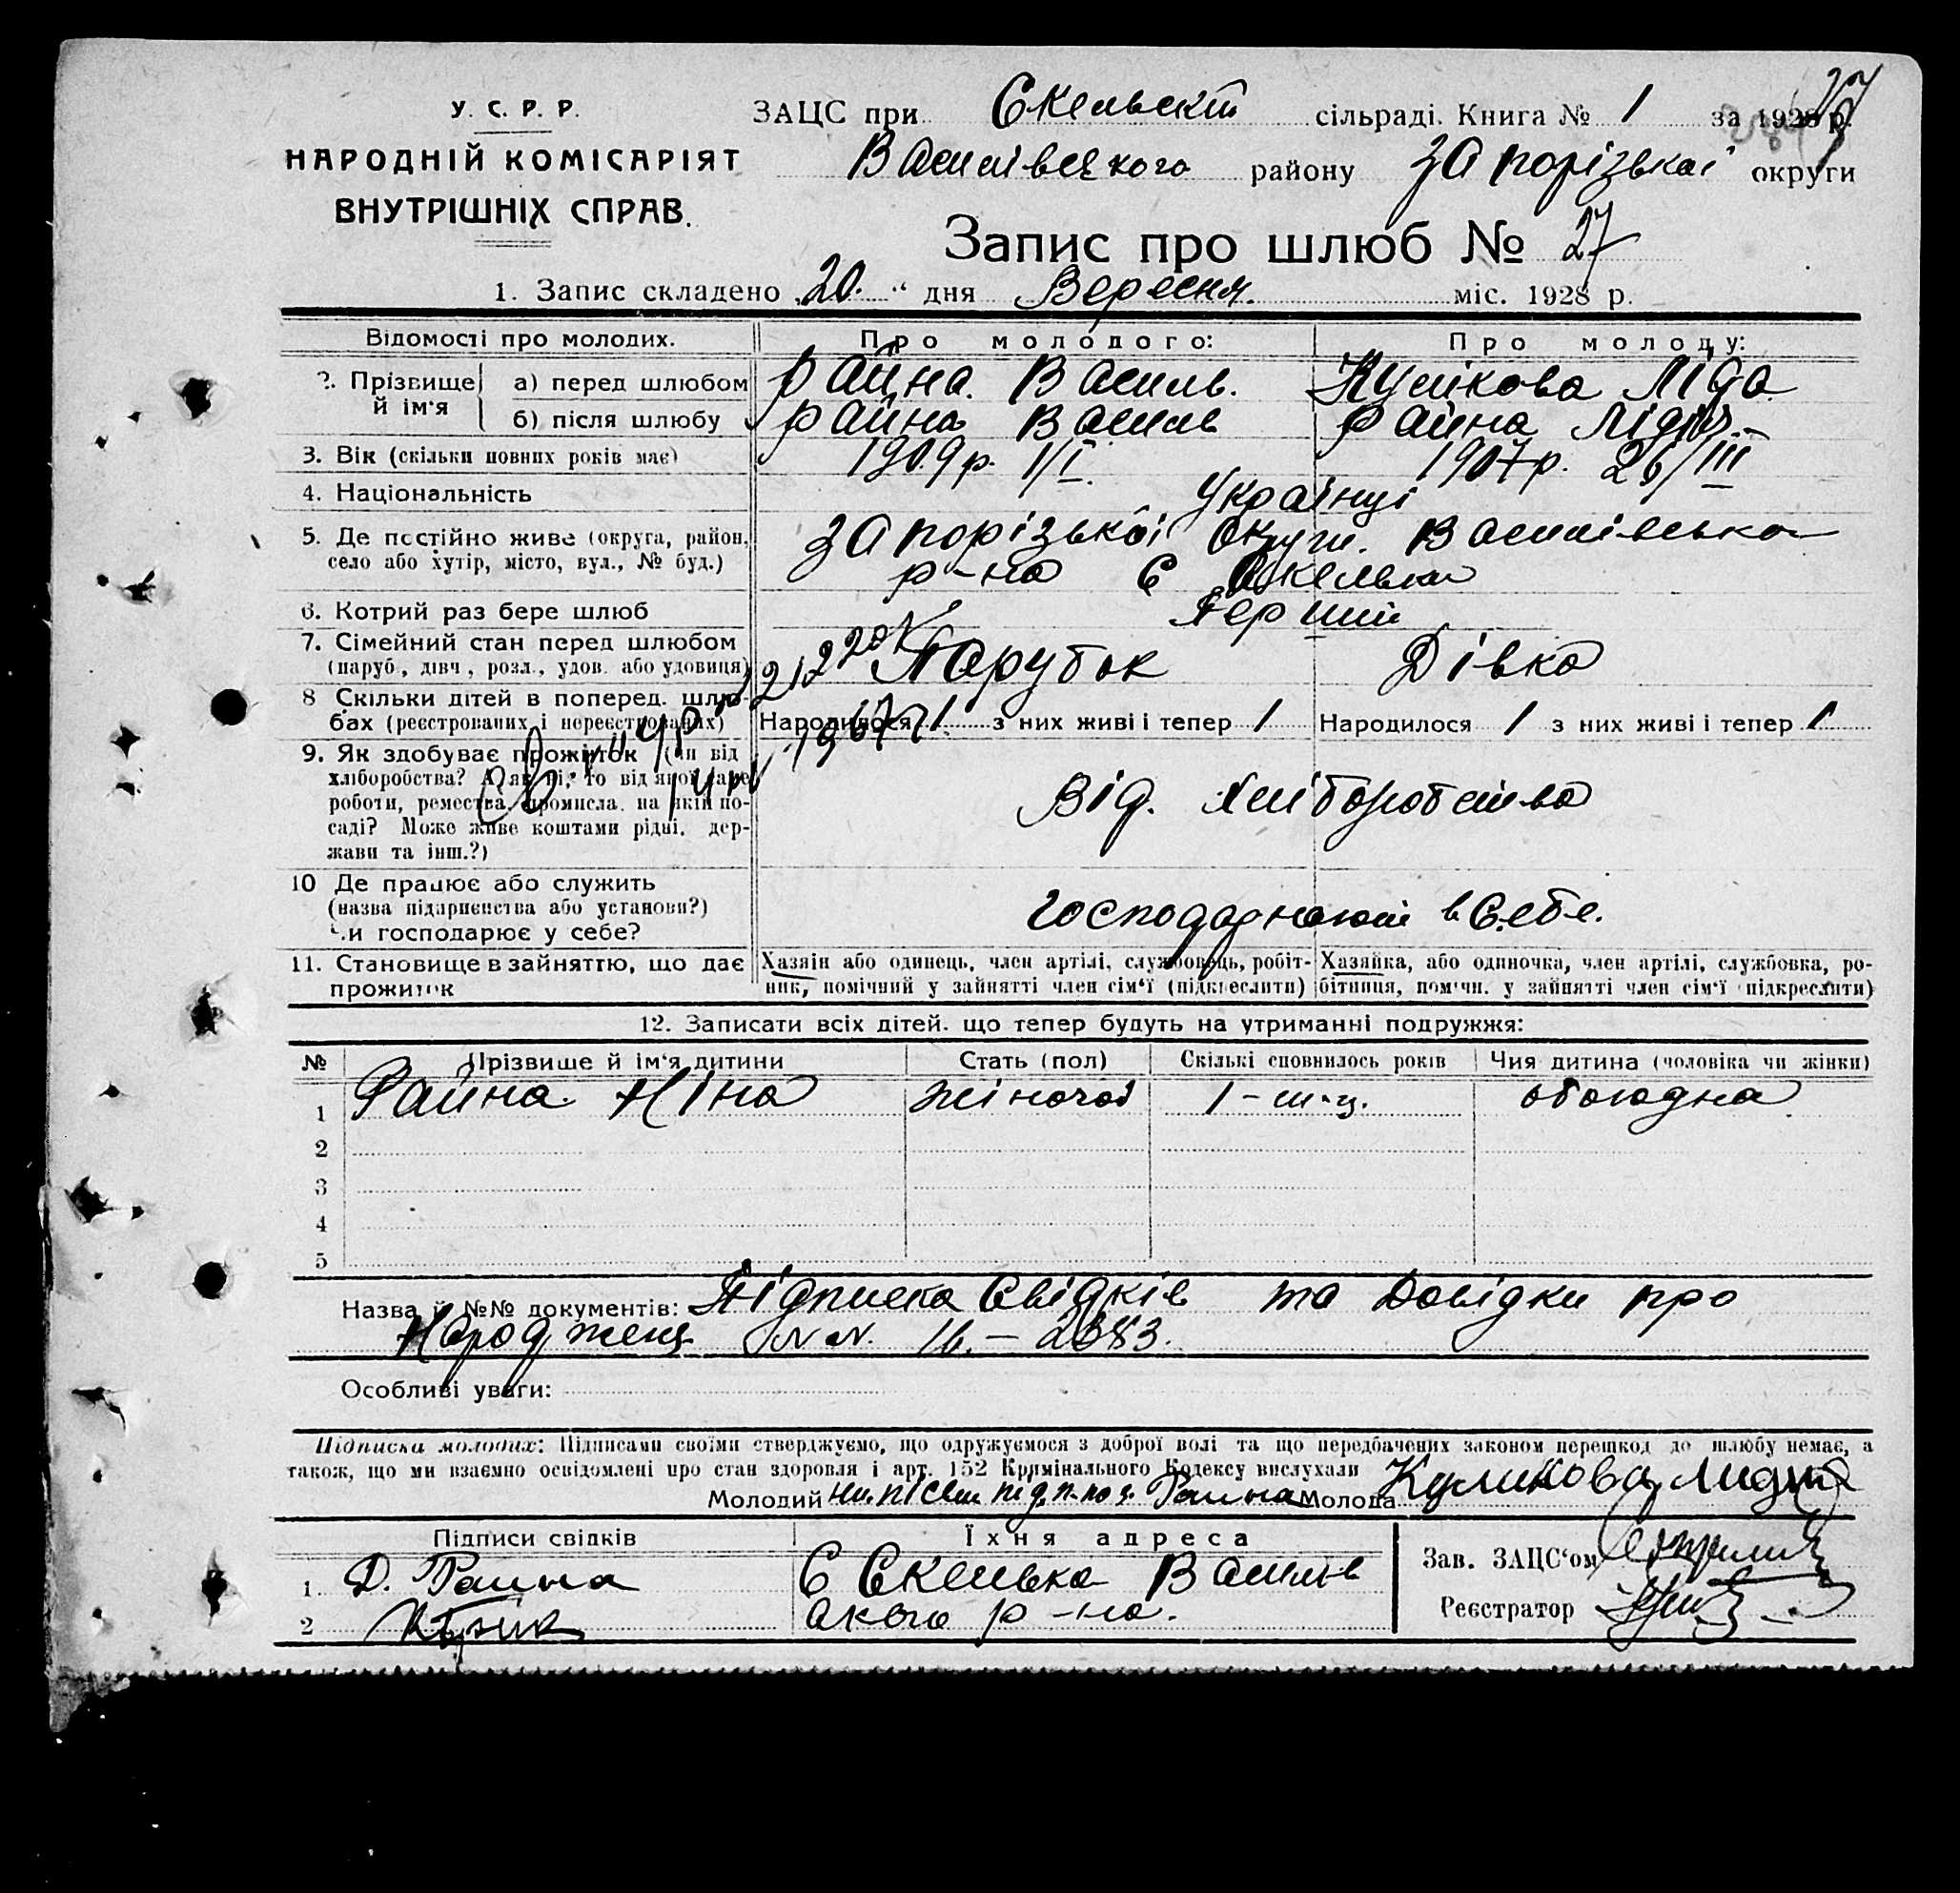 У. С. Р. Р.
НАРОДНІЙ КОМІСАРІЯТ
ВНУТРІШНІХ СПРАВ.
ЗАЦС при Скельскій сільраді. Книга № 1 за 1928 р.
27
Василівського району Запорізької округи
Запис про шлюб № 27
1. Запис складено „20“ дня Вересня. міс. 1928 р.
Відомості про молодих. Про молодого: Про молоду:
2. Прізвище й ім'я а) перед шлюбом Райна. Василь. Кулікова Ліда
б) після шлюбу Райна Василь Райна Лідія
3. Вік (скільки повних років має) 1909р. 1/I. 1907р. 26/III
4. Національність Українці
5. Де постійно живе (округа, район, село або хутір, місто, вул., № буд.) Запорізької Округи. Василівсько
р-на С Скельки
6. Котрий раз бере шлюб Перший
7. Сімейний стан перед шлюбом (паруб., дівч., розл., удов. або удовиця) Парубок Дівка
8 Скільки дітей в поперед. шлюбах (реєстрованих і нереєстрованих) Народилося 1 з них живі і тепер 1 Народилося 1 з них живі і тепер 1
9. Як здобуває прожиток (чи від
хліборобства? А як ні, то від якої саме
роботи, ремества, промисла, на якій по-
саді? Може живе коштами рідні, дер-
жави та інш.?)
Від. Хліборобства
10 Де працює або служить
(назва підприємства або установи?)
Чи господарює у себе?
Господарюють в Себе.
11. Становище в зайняттю, що дає прожиток
Хазяїн або одинець, член артілі, службовець, робіт-
ник, помічний у зайнятті член сім'ї (підкреслити)
Хазяйка, або одиночка, член артілі, службовка, ро-
бітниця, помічн. у зайнятті член сім'ї (підкреслити)
12. Записати всіх дітей, що тепер будуть на утриманні подружжя:
№ Прізвище й ім'я дитини Стать (пол) Скількі сповнилось років Чия дитина (чоловіка чи жінки)
1 Райна Ніна жіноча 1 - обоюдна
2
3
4
5
Назва й №№ документів: Підписка Свідків та Довідки про
Народжен NN. 16. - 2383.
Особливі уваги:
Підписка молодих: Підписами своїми стверджуємо, що одружуємося з доброї волі та що передбачених законом перешкод до шлюбу немає, а
також, що ми взаємно освідомлені про стан здоровля і арт. 152 Крімінального Кодексу вислухали
Молодий Райна Молода Куликова Лидия
Підписи свідків Їхня адреса
1. Д. Райна С Скелька Василів
2 ского р-на.
Зав. ЗАЦС'ом
Реєстратор